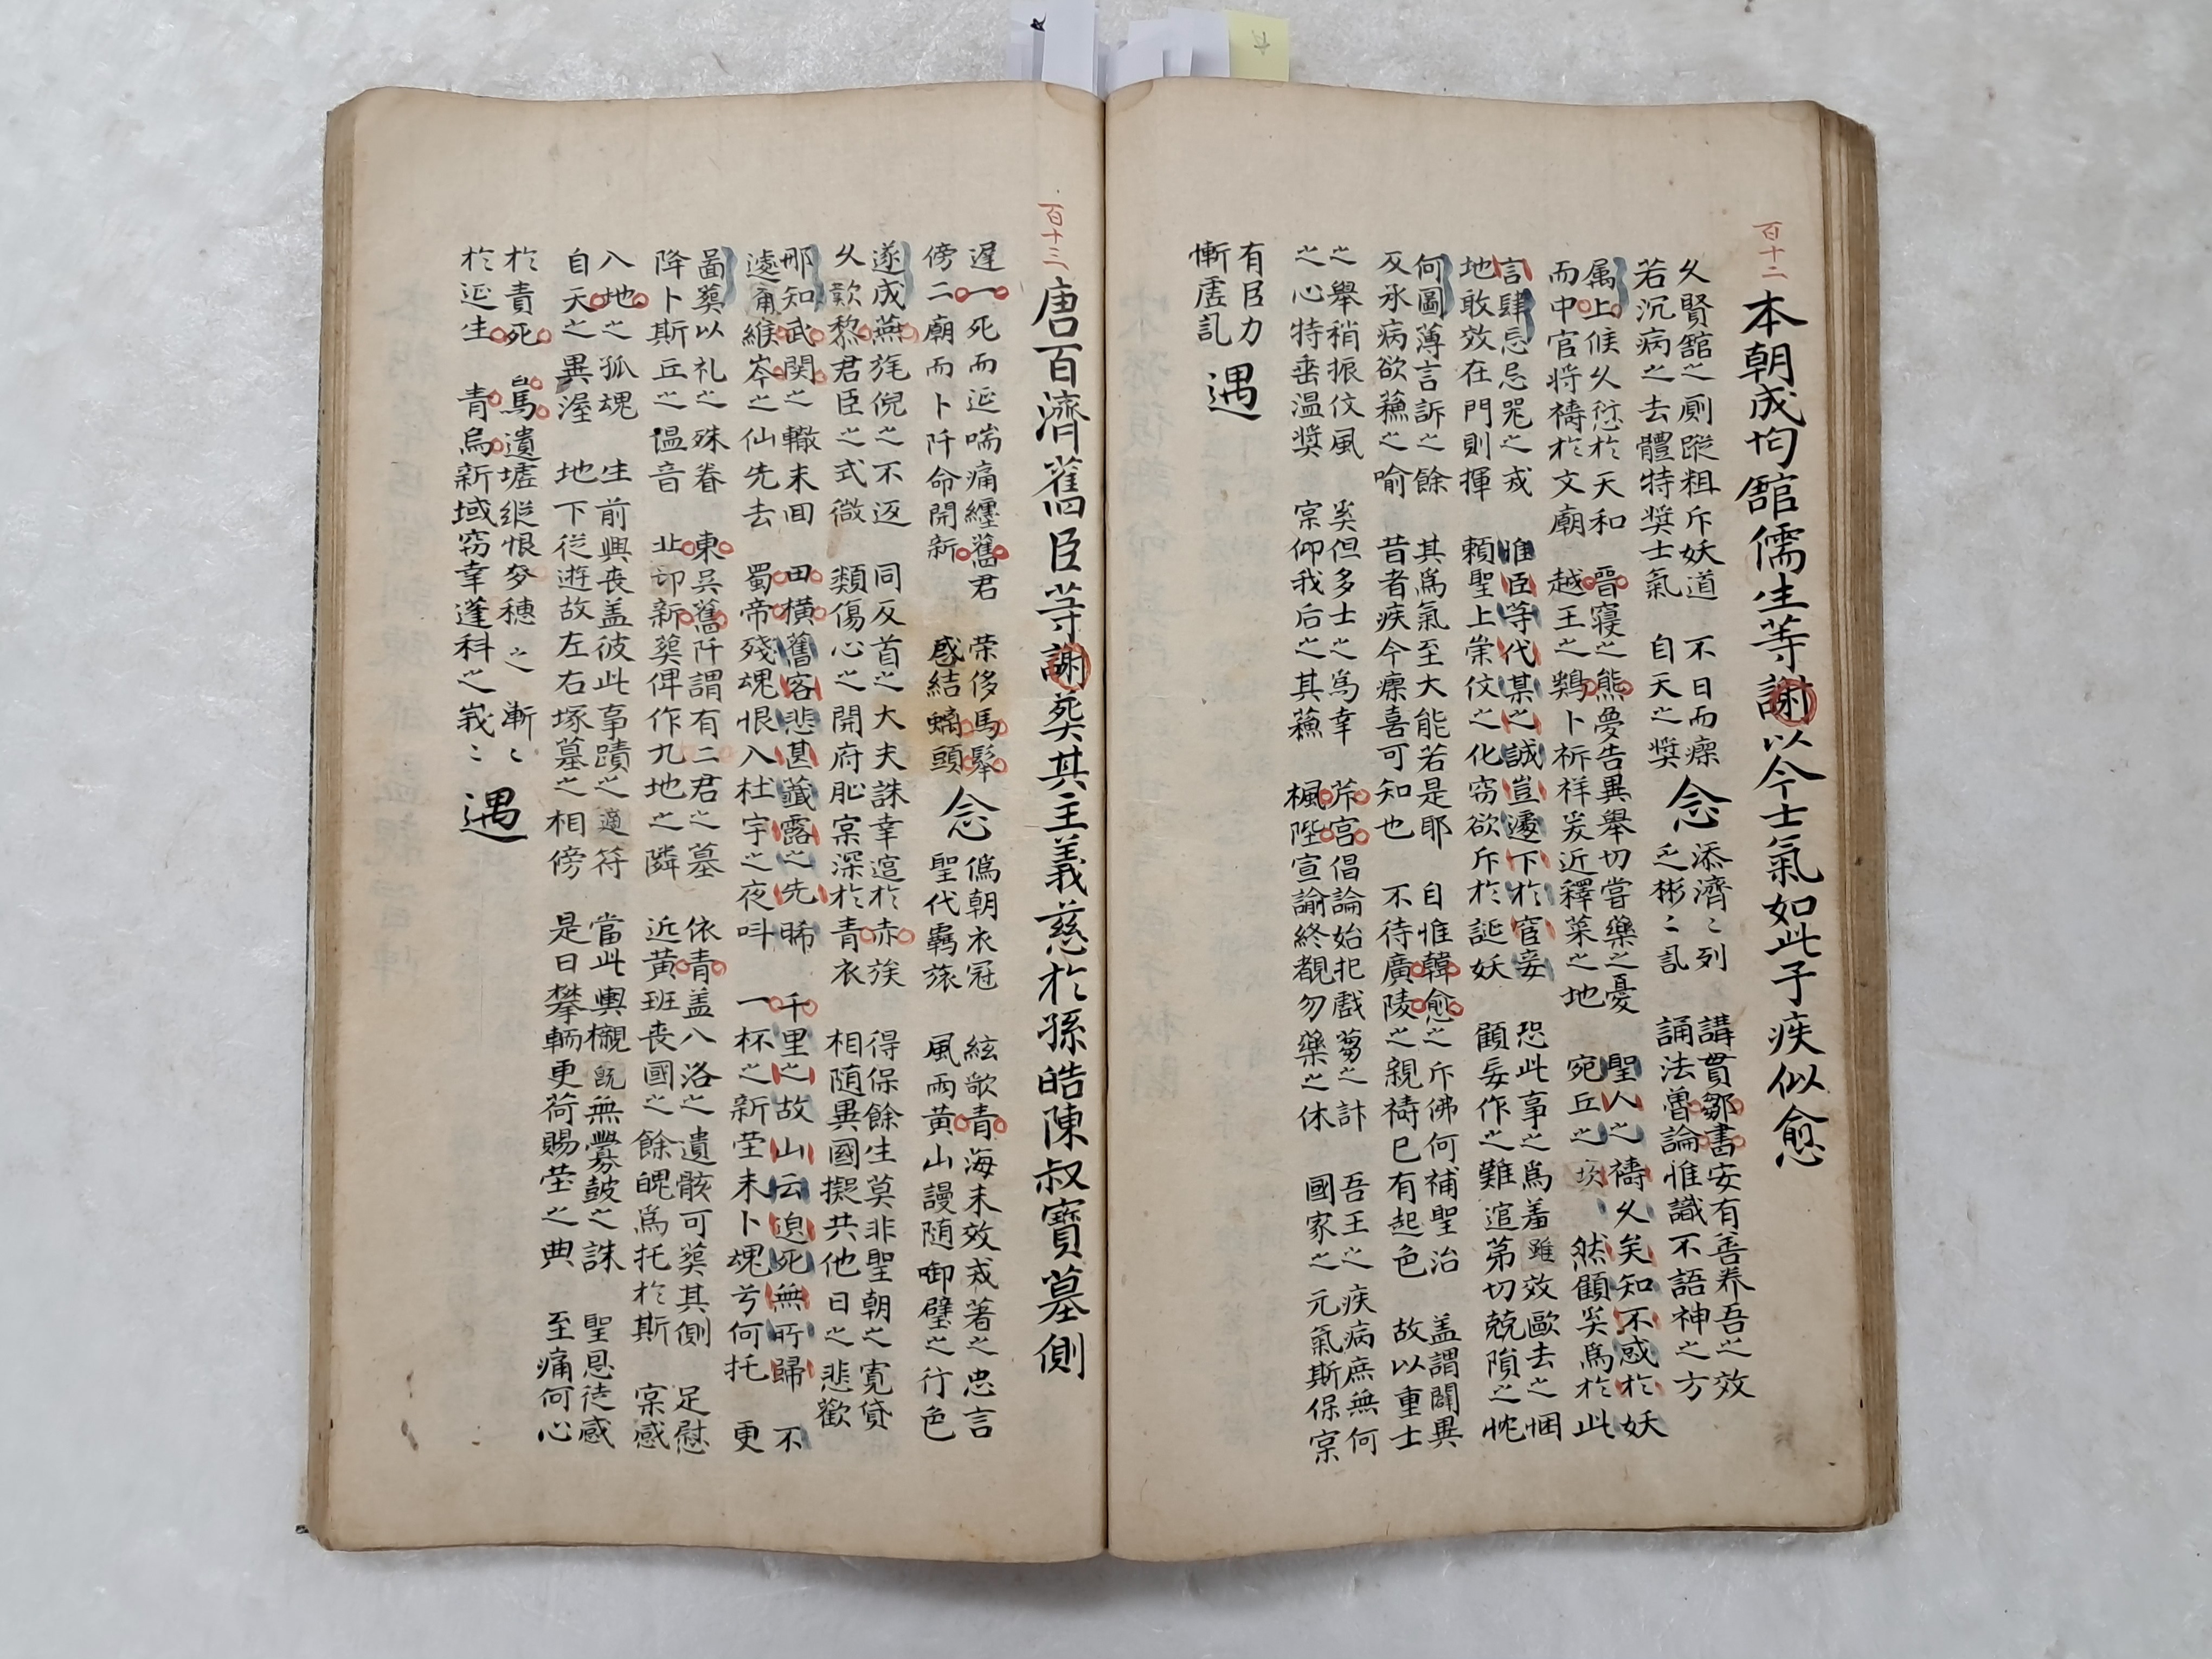 百十二
本朝成均舘儒生等謝以今士氣如此予疾似愈
久賢舘之厠蹤粗斥妖道
若沉病之去體特奬士氣
不日而瘳
自天之奬
念
添濟〻列
乏彬〻訊
講貫鄒書安有善养吾之效
誦法魯論惟識不語神之方
属上候久愆於天和
而中官将禱於文廟
晉寢之熊夢告異舉切嘗藥之憂
越王之鷄卜祈祥爰近釋菜之地
聖人之禱久矣知不惑於妖
宛丘之坎、然顧奚爲於此
言肆忘忌器之戒
地敢效在門則揮
惟臣等代某之誠豈遽下於宦妾
頼聖上崇仗之化窃欲斥於誕妖
恐此事之爲羞雖效歐去之悃
顧妄作之難逭苐切兢隕之忱
何圖薄言訴之餘
反承病欲蘓之喻
其爲氣至大能若是耶
昔者疾今瘳喜可知也
自惟韓愈之斥佛何補聖治
不待廣陵之親禱已有起色
盖謂闢異
故以重士
之舉稍振仗風
之心特垂温奬
奚但多士之爲幸
寀仰我后之其蘓
芹宫倡論始犯戲蒭之訐
楓陛宣諭終覩勿藥之休
吾王之疾病庶無何
國家之元氣斯保寀
有臣力
慚虗訊
遇
百十三
唐百濟舊臣等謝葬其主義慈於孫皓陳叔寶墓側
遅一死而延喘痛纏舊君
傍二廟而卜阡命開新
荣侈馬鬣
感結螭頭
念
僞朝衣冠
聖代羇旅
絃歌青海未效戎著之忠言
風雨黄山謾随啣璧之行色
遂成燕旄倪之不返
久歎黎君臣之式微
同反首之大夫誅幸逭於赤族
類傷心之開府耻寀深於青衣
得保餘生莫非聖朝之寬貸
相随異國擬共他日之悲歡
那知武関之轍未囬
遽痛緱岑之仙先去
田横舊客悲甚薤露之先晞
蜀帝殘魂恨入杜宇之夜呌
千里之故山云迫死無所歸
一杯之新茔未卜魂兮何托
不
更
啚葬以礼之殊眷
降卜斯丘之愠音
東呉舊阡謂有二君之墓
北邙新葬俾作九地之隣
依青盖八洛之遺骸可葬其側
近黄班丧國之餘魄爲托於斯
足慰
寀感
八地之孤魂
自天之異渥
生前興丧盖彼此事蹟之適符
地下從逰故左右塚墓之相傍
當此輿櫬旣無釁皷之誅
是日攀輀更荷賜茔之典
聖恩徒感
至痛何心
於責死
於延生
白馬遺墟縱恨麥穗之漸〻
青烏新域窃幸蓬科之峩〻
遇